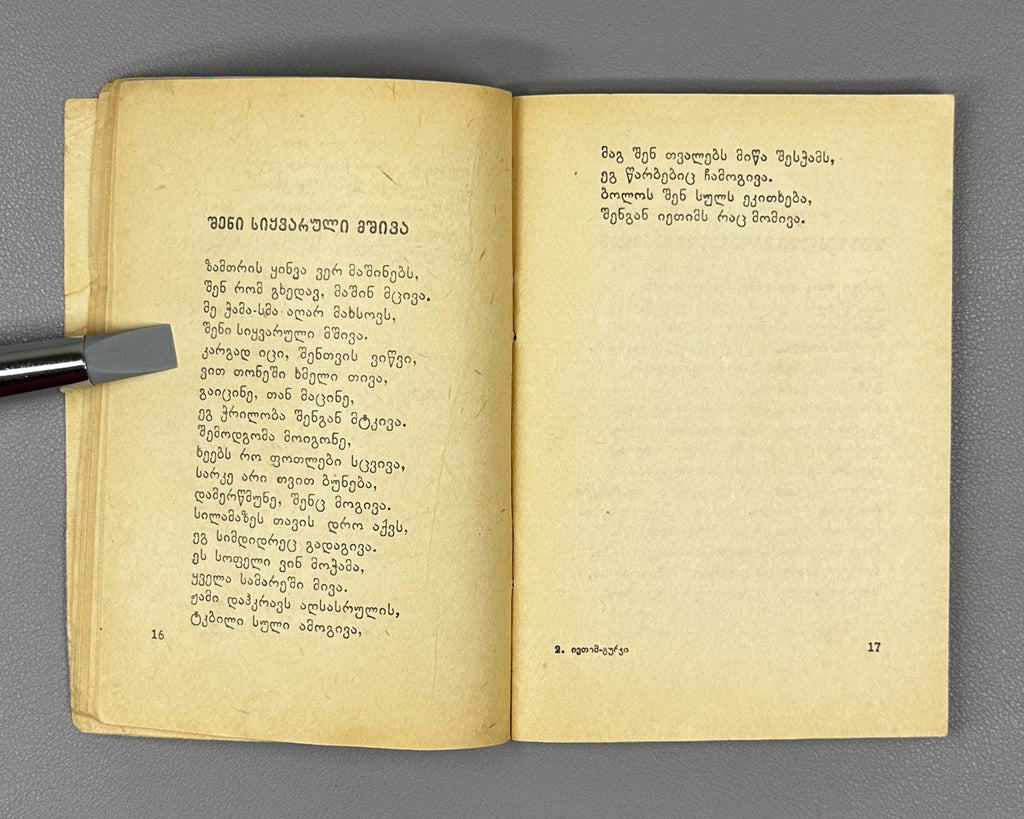 შენი სიყვარული მშივა
ზამთრის ყინვა ვერ მაშინებს,
შენ რომ გხედავ, მაშინ მცივა.
მე ჭამა-სმა აღარ მახსოვს,
შენი სიყვარული მშივა.
კარგად იცი, შენთვის ვიწვი,
ვით თონეში ხმელი თივა,
გაიცინე, თან მაცინე,
ეგ ჭრილობა შენგან მტკივა.
შემოდგომა მოიგონე,
ხეებს რო ფოთლები სცვივა,
სარკე არი თვით ბუნება,
დამერწმუნე, შენც მოგივა.
სილამაზეს თავის დრო აქვს,
ეგ სიმდიდრეც გადაგივა.
ეს სოფელი ვინ მოჭამა,
ყველა სამარეში მივა.
ჟამი დაჰკრავს აღსასრულის,
ტკბილი სული ამოგივა,
16
მაგ შენ თვალებს მიწა შესჭამს,
ეგ წარბებიც ჩამოგივა.
ბოლოს შენ სულს ეკითხება,
შენგან იეთიმს რაც მომივა.
2. იეთიმ-გურჯი
17